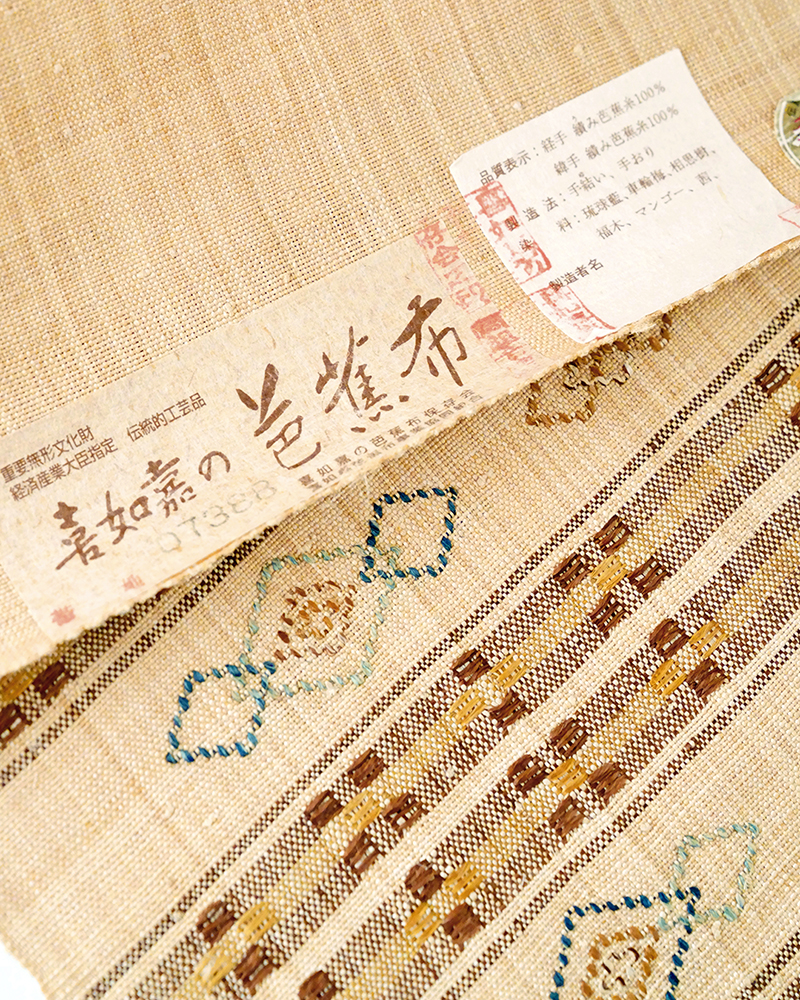 品質表示：経手 績み芭蕉糸100％
緯手 績み芭蕉糸100％
製造法：手結い、手おり
染料：琉球藍、車輪梅、相思樹、
福木、マンゴー、茜、
製造者名
重要無形文化財
経済産業大臣指定 伝統的工芸品
喜如嘉の芭蕉布
喜如嘉の芭蕉布保存会